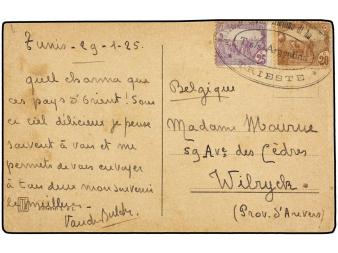 Tunis - 29-1-25.
Quel charme que
ces pays d'Orient! Sous
ce ciel délicieux je pense
souvent à vous et me
permets de vous envoyer
à tous deux mon souvenir
le meilleur.
25
20
TRIESTE
Belgique
Madame Mourue
59 Ave des Cèdres
Wilryck.
(Prov. d'Anvers)